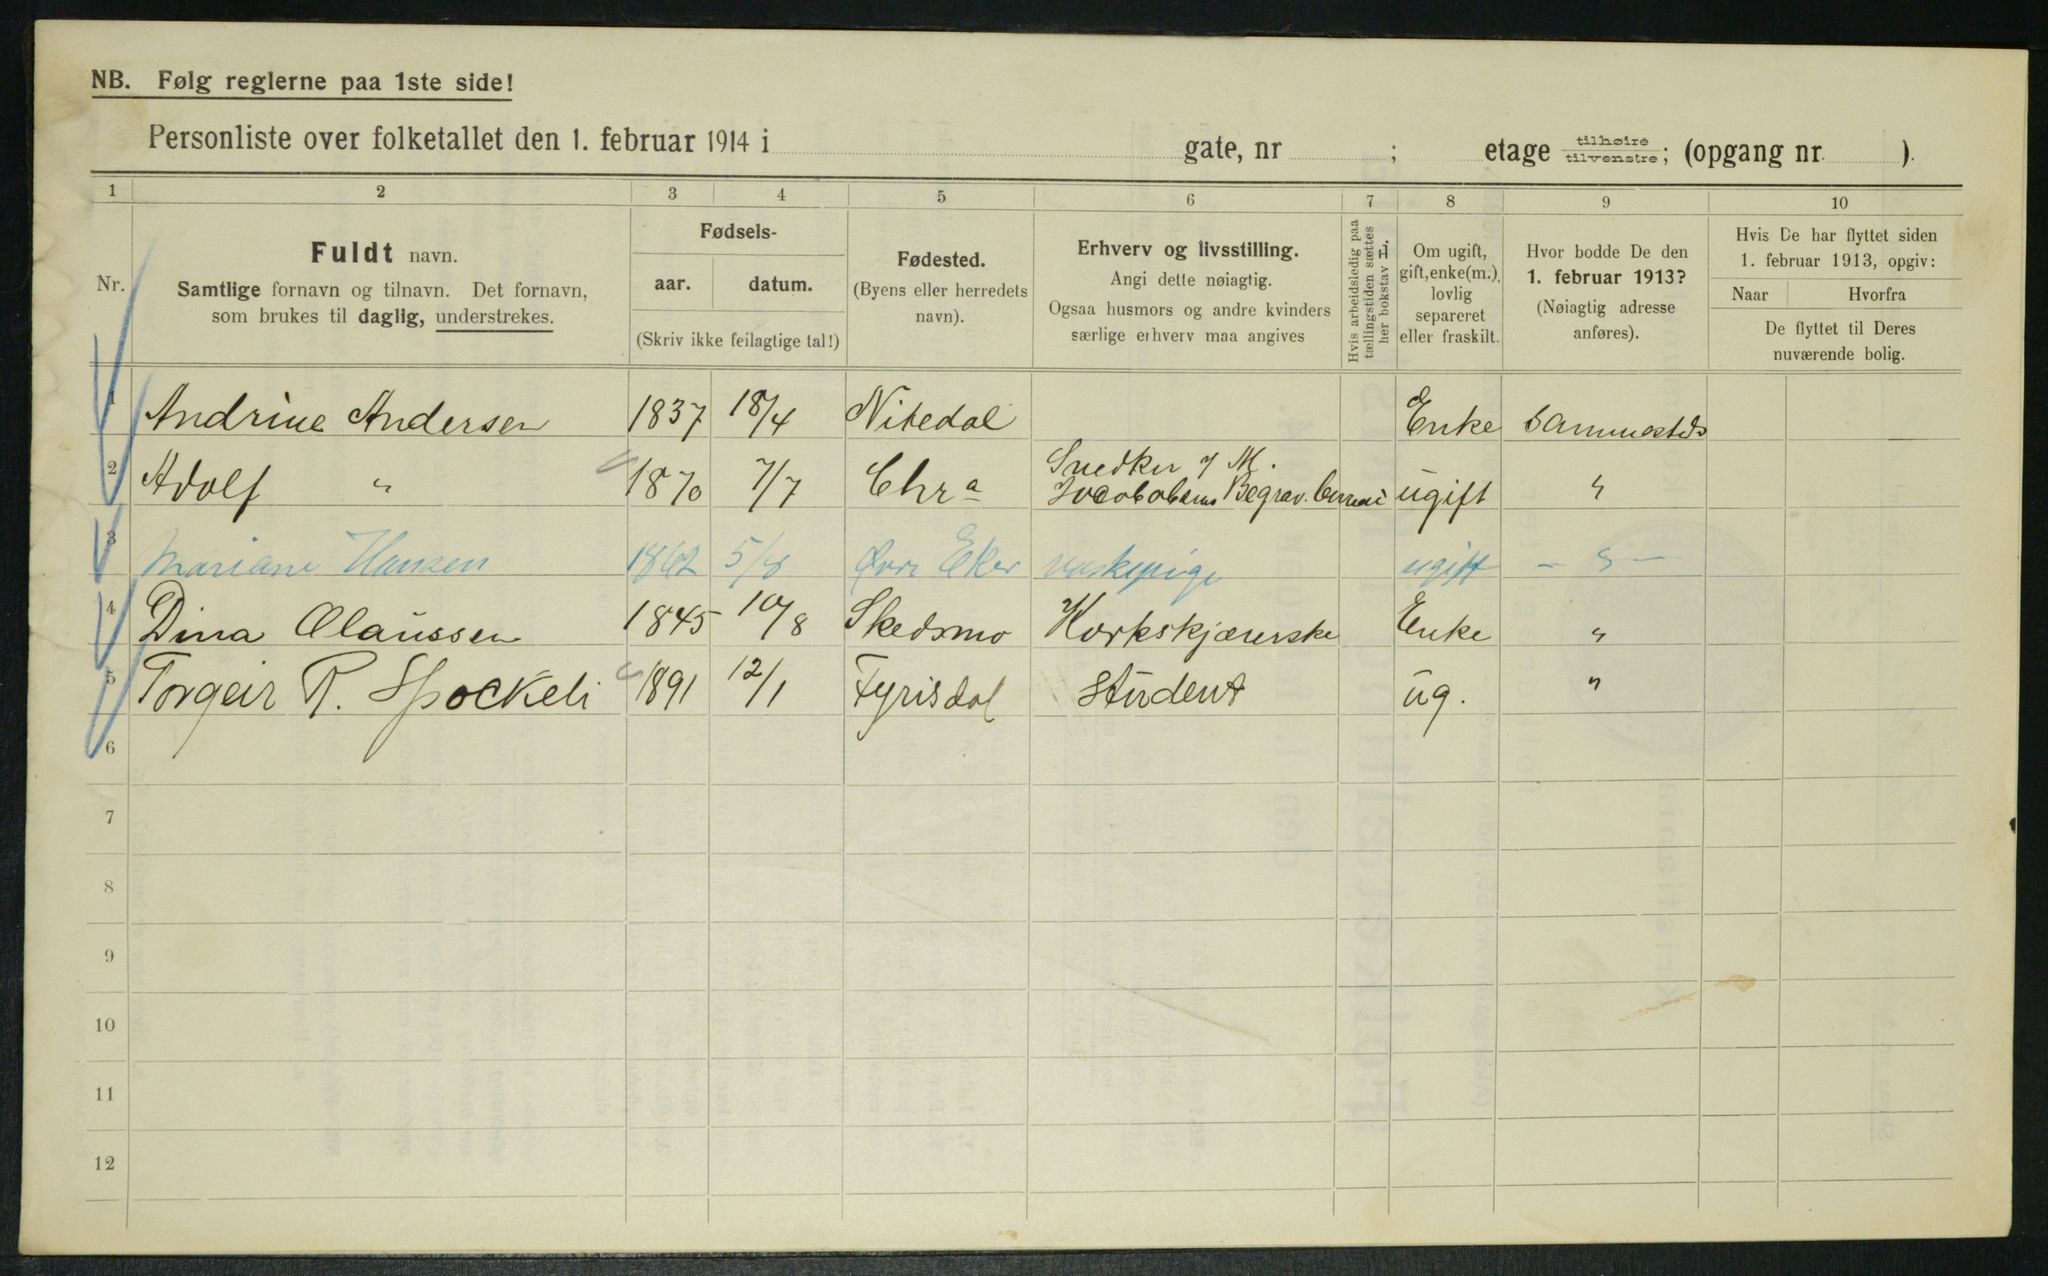 NB. Følg reglerne paa 1ste side!
Personliste over folketallet den 1. februar 1914 i gate, nr ; etage tilhøire tilvenstre; (opgang nr. ).
1 2 3 4 5 6 7 8 9 10
Nr.
Fuldt navn.
Samtlige fornavn og tilnavn. Det fornavn,
som brukes til daglig, understrekes.
Fødsels-
aar. datum.
(Skriv ikke feilagtige tal!)
Fødested.
(Byens eller herredets
navn).
Erhverv og livsstilling.
Angi dette nøiagtig.
Ogsaa husmors og andre kvinders
særlige erhverv maa angives
Hvis arbeidsledig paa
tællingstiden sættes
her bokstav L.
Om ugift,
gift, enke(m.),
lovlig
separeret
eller fraskilt.
Hvor bodde De den
1. februar 1913?
(Nøiagtig adresse
anføres).
Hvis De har flyttet siden
1. februar 1913, opgiv:
Naar Hvorfra
De flyttet til Deres
nuværende bolig.
1 Andrine Andersen 1837 18/4 Nitedal Enke Sammesteds
2 Adolf " 1870 7/7 Chra Snedker i M.
Jacobsens Begrav. ugift "
3 Mariane Hansen 1862 5/8 Øvre Eker vaskepige ugift - " -
4 Dina Olaussen 1845 10/8 Skedsmo Korkskjærerske Enke "
5 Torgeir R. Spockeli 1891 12/1 Fyrisdal Student ug. "
6
7
8
9
10
11
12